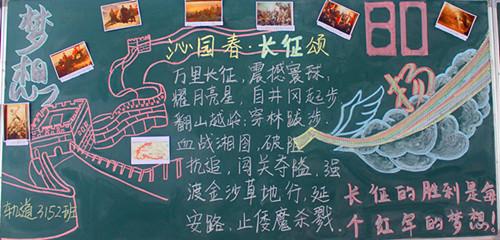 梦想
沁园春·长征颂
万里长征，震撼寰球，
耀月亮星，自井冈起步
翻山越岭；穿林跋步.
血战湘图，破
抗追，闯关夺隘，强
渡金沙草地行，延
安路，止倭魔杀戮.
80
扬
长征的胜到是每
个红军的梦想。
轨道3152班